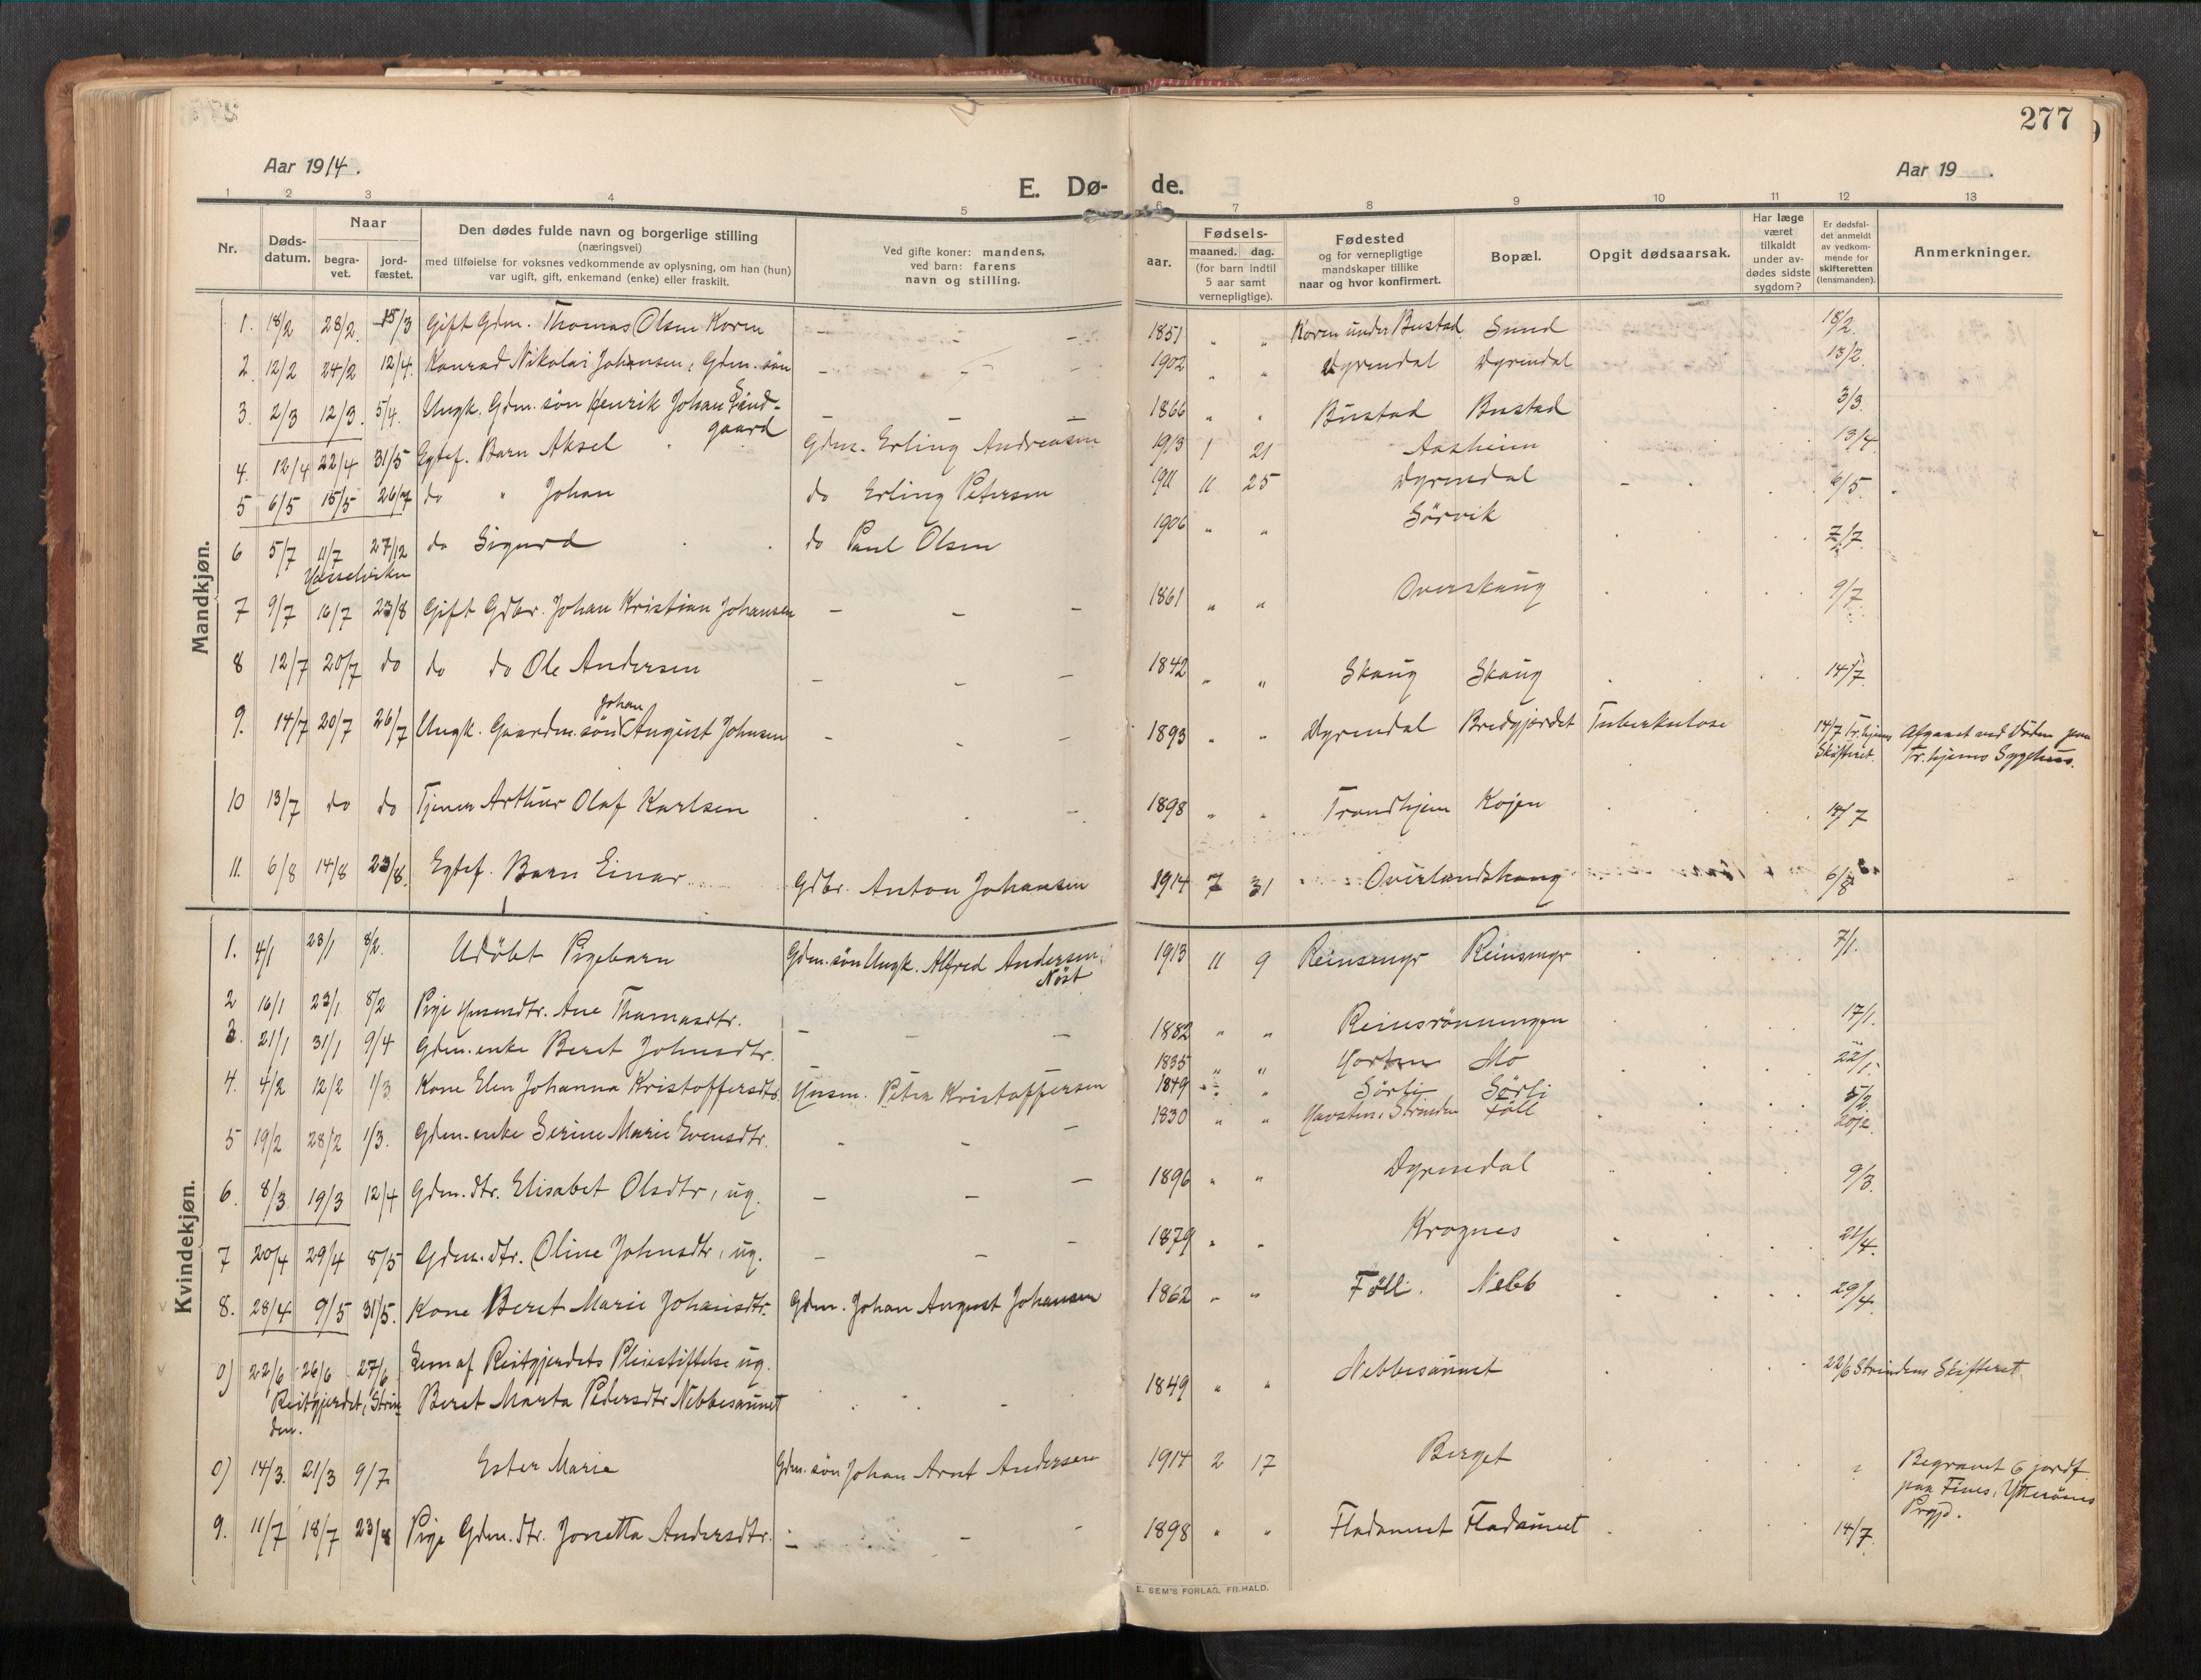 277
Aar 1914.
Aar 19 .
E. Dø- de.
1 2 3 4 5 6 7 8 9 10 11 12 13
Nr.
Døds-
datum.
Naar
begra-
vet.
jord-
fæstet.
Den dødes fulde navn og borgerlige stilling
(næringsvei)
med tilføielse for voksnes vedkommende av oplysning, om han (hun)
var ugift, gift, enkemand (enke) eller fraskilt.
Ved gifte koner: mandens,
ved barn: farens
navn og stilling.
Fødsels-
aar.
maaned. dag.
(for barn indtil
5 aar samt
vernepligtige).
Fødested
og for vernepligtige
mandskaper tillike
naar og hvor konfirmert.
Bopæl.
Opgit dødsaarsak.
Har læge
været
tilkaldt
under av-
dødes sidste
sygdom?
Er dødsfal-
det anmeldt
av vedkom-
mende for
skifteretten
(lensmanden).
Anmerkninger.
Mandkjøn.
1. 18/2 28/2. 15/3 Gift Gdm. Thomas Olsen Koren - - - 1851 " " Koren under Bustad Sund 18/2.
2. 12/2 24/2 12/4. Konrad Nikolai Johansen, Gdm. søn - - - 1902 " " Dyrendal Dyrendal 13/2.
3. 2/3 12/3. 5/4. Ungk. Gdm. søn Henrik Johan Lind-
gaard - - - 1866 " " Bustad Bustad 3/3.
4. 12/4 22/4 31/5 Egtef. Barn Aksel Gdm. Erling Andreasen 1913 1 21 Aasheim 13/4.
5 6/5 15/5 26/7 do " Johan do Erling Petersen 1911 11 25 Dyrendal 6/5.
6 5/7 11/7 27/12 do Sigurd do Paul Olsen 1906 " " Sörvik 7/7.
Hasselviken
7 9/7 16/7 23/8 Gift Gdbr. Johan Kristian Johansen - - - 1861 " " Overskaug 9/7.
8 12/7 20/7 do do do Ole Andersen - - - 1842 " " Skaug Skaug 14/7.
9. 14/7 20/7 26/7 Ungk. Gaardm. søn Johan August Johnsen - - - 1893 " " Dyrendal Bredgjerdet Tuberkulose 14/7 Tr.hjems
Skifteret. Afgaaet ved Döden paa
Tr.hjems Sygehus.
10 13/7 do do Tjener Arthur Olaf Karlsen 1898 " " Trondhjem Kojen 14/7
11. 6/8 14/8 23/8. Egtef. Barn Einar Gdbr. Anton Johansen 1914 7 31 Overlandshaug 6/8
Kvindekjøn.
1. 4/1 23/1 8/2. Udöbt Pigebarn Gdm. søn Ungk. Alfred Andersen
Nöst 1913 11 9 Reinsmyr Reinsmyr 7/1.
2 16/1 23/1 8/2 Pige Husmdtr. Ane Thomasdtr. 1882 " " Reinsrönningen 17/1.
3. 21/1 31/1 9/4 Gdm. enke Beret Johnsdtr. - - - 1835 " " Horten Mo 22/1.
4. 4/2 12/2 1/3 Kone Elen Johanna Kristoffersdtr. Husm. Peter Kristoffersen 1849 " " Sörli Sörli 5/2
5 19/2 28/2 1/3. Gdm. enke Serine Marie Evensdtr. - - - 1830 " " Strinden Föll 20/2.
6. 8/3 19/3 12/4 Gdm. dtr. Elisabet Olsdtr, ug. - - - 1896 " " Dyrendal 9/3.
7 20/4 29/4 8/5 Gdm. dtr. Oline Johnsdtr, ug. - - - 1879 " " Krognes 21/4.
8. 28/4 9/5 31/5. Kone Beret Marie Johansdtr. Gdm. Johan August Johansen 1862 " " Föll. Nebb 29/4.
0) 22/6 26/6 27/6 Lem af Reitgjerdets Pleiestiftelse ug.
Reitgjerdet, Strin-
den. Beret Marta Pedersdtr Nebbesaunet 1849 " " Nebbesaunet 22/6 Strindens Skifteret.
0) 14/3. 21/3 9/7 Ester Marie Gdm. søn Johan Arnt Andersen 1914 2 17 Berget Begravet & jordf.
paa Fines, Ytterøens
Prgjd.
9. 11/7 18/7 23/8 Pige Gdm. dtr. Jonetta Andersdtr. - - - 1898 " " Fladaunet Fladaunet 14/7.
E. SEM'S FORLAG, FR.HALD.